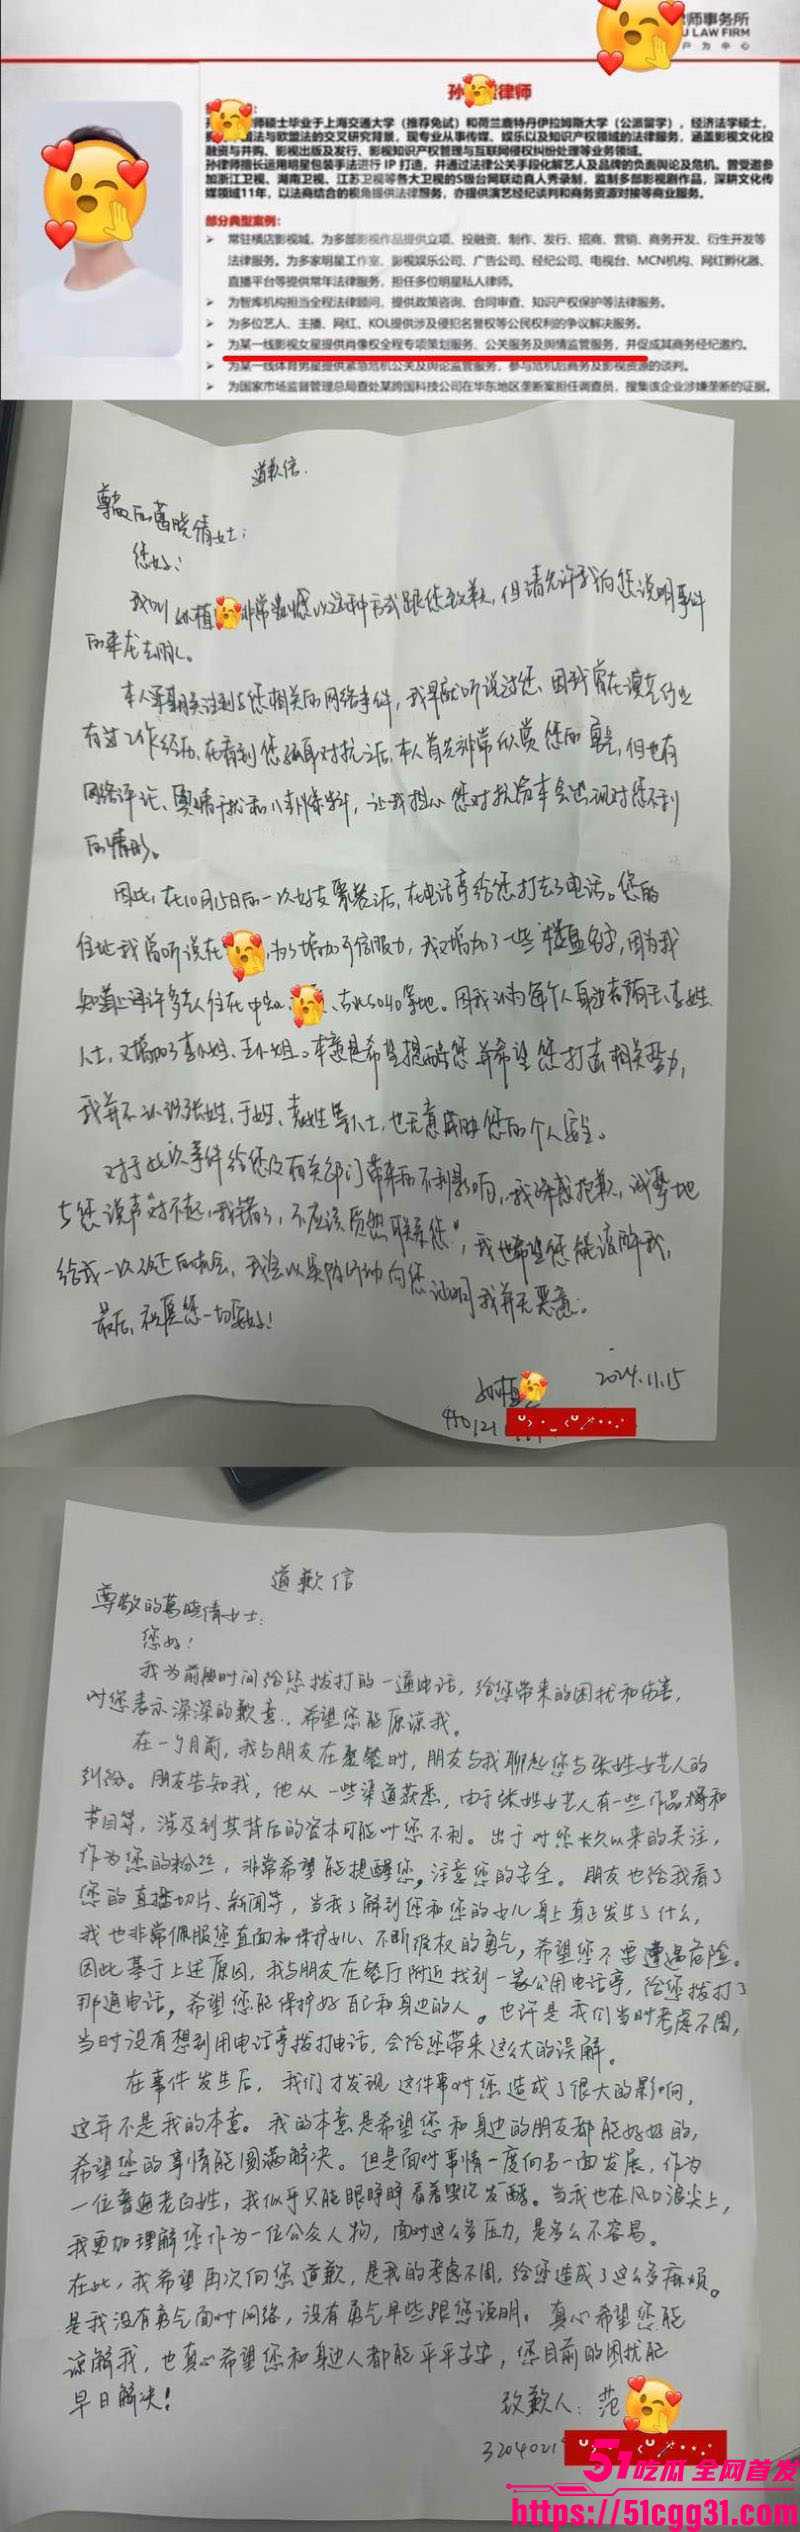 师事务所
U LAW FIRM
户 为 中 心
孙 律师
师硕士毕业于上海交通大学（推荐免试）和荷兰鹿特丹伊拉姆斯大学（公派留学），经济法学硕士，
法与欧盟法的交叉研究背景，现专业从事传媒、娱乐以及知识产权领域的法律服务，涵盖影视文化投
融资与并购、影视出版及发行、影视知识产权管理与互联网侵权纠纷处理等业务领域。
孙律师擅长运用明星包装手法进行 IP 打造，并通过法律公关手段化解艺人及品牌的负面舆论及危机。曾受邀参
加浙江卫视、湖南卫视、江苏卫视等各大卫视的S级台网联动真人秀录制，监制多部影视剧作品，深耕文化传
媒领域11年，以法商结合的视角提供法律服务，亦提供演艺经纪谈判和商务资源对接等商业服务。
部分典型案例：
常驻横店影视城，为多部影视作品提供立项、投融资、制作、发行、招商、营销、商务开发、衍生开发等
法律服务。为多家明星工作室、影视娱乐公司、广告公司、经纪公司、电视台、MCN机构、网红孵化器、
直播平台等提供常年法律服务，担任多位明星私人律师。
为智库机构担当全程法律顾问，提供政策咨询、合同审查、知识产权保护等法律服务。
为多位艺人、主播、网红、KOL提供涉及侵犯名誉权等公民权利的争议解决服务。
为某一线影视女星提供肖像权全程专项策划服务、公关服务及舆情监管服务，并促成其商务经纪邀约。
为某一线体育男星提供紧急危机公关及舆论监管服务，参与危机后商务及影视资源的谈判。
为国家市场监督管理总局查处某跨国科技公司在华东地区垄断案担任调查员，搜集该企业涉嫌垄断的证据。
道歉信
尊敬的葛晓倩女士：
您好！
我叫孙植 非常 以这种方式跟您致歉，但请允许我向您说明事件
的来龙去脉。
本人 关注到与您相关的网络事件，我早就听说过您、因我曾在演艺行业
有过工作经历，在看到您 对抗之后，本人首先非常欣赏您的勇气，但也有
网络评论、舆情干扰和八卦爆料，让我担心您对抗资本会出现对您不利
的情形。
因此，在10月15日的一次好友聚餐后，在电话亭给您打去了电话。您的
住址我曾听说在 ，为了增加可信服力，我又增加了一些楼盘名字，因为我
知道 许多 人住在中 、 等地。因我认为每个人身边都有王、李姓
人士，又增加了李小姐、王小姐。本意是希望提醒您并希望您打击相关势力，
我并不认识张姓、于姓、 姓等人士，也无意威胁您的个人安全。
对于此次事件给您及有关部门带来的不利影响，我深感抱歉，诚挚地
与您说声"对不起，我错了，不应该贸然联系您"，我也希望您能谅解我，
给我一次改正的机会，我会以实际行动向您证明我并无恶意。
最后，祝愿您一切安好！
孙植 2024.11.15
道歉信
尊敬的葛晓倩女士：
您好！
我为前段时间给您拨打的一通电话，给您带来的困扰和伤害，
对您表示深深的歉意，希望您能原谅我。
在一个月前，我与朋友在聚餐时，朋友与我聊起您与张姓女艺人的
纠纷。朋友告知我，他从一些渠道获悉，由于张姓女艺人有一些作品将和
节目等，涉及到其背后的资本可能对您不利。出于对您长久以来的关注，
作为您的粉丝，非常希望能提醒您，注意您的安全。朋友也给我看了
您的直播切片、新闻等，当我了解到您和您的女儿身上真正发生了什么，
我也非常佩服您直面和保护女儿、不断维权的勇气，希望您不要遭遇危险。
因此基于上述原因，我与朋友在餐厅附近找到一家公用电话亭，给您拨打了
那通电话，希望您能保护好自己和身边的人。也许是我们当时考虑不周，
当时没有想到用电话亭拨打电话，会给您带来这么大的误解。
在事件发生后，我们才发现这件事对您造成了很大的影响，
这并不是我的本意。我的本意是希望您和身边的朋友都能好好的，
希望您的事情能圆满解决。但是面对事情一度向另一面发展，作为
一位普通老百姓，我似乎只能眼睁睁看着舆论发酵。当我也在风口浪尖上，
我更加理解您作为一位公众人物，面对这么多压力，是多么不容易。
在此，我希望再次向您道歉，是我的考虑不周，给您造成了这么多麻烦。
是我没有勇气面对网络，没有勇气早些跟您说明。真心希望您能
谅解我，也真心希望您和身边人都能平平安安，您目前的困扰能
早日解决！
致歉人：范
3204021
51吃瓜 全网首发
https://51cgg31.com